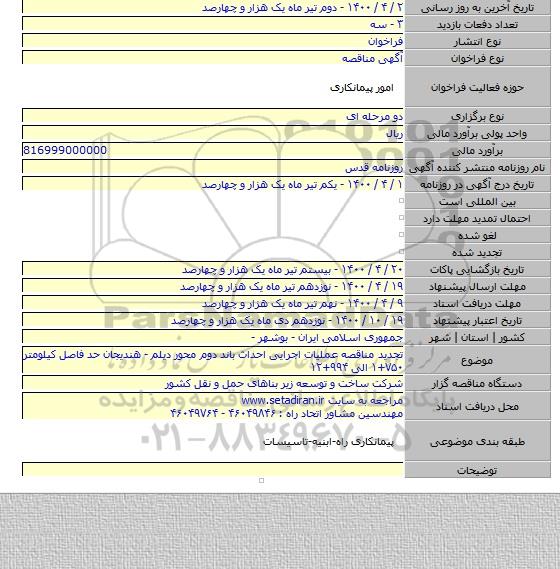 تاریخ آخرین به روز رسانی ۲ / ۴ / ۱۴۰۰ - دوم تیر ماه یک هزار و چهارصد
تعداد دفعات بازدید ۳ - سه
نوع انتشار فراخوان
نوع فراخوان آگهی مناقصه
حوزه فعالیت فراخوان امور پیمانکاری
نوع برگزاری دو مرحله ای
واحد پولی برآورد مالی ریال
برآورد مالی 816999000000
نام روزنامه منتشر کننده آگهی روزنامه قدس
تاریخ درج آگهی در روزنامه ۱ / ۴ / ۱۴۰۰ - یکم تیر ماه یک هزار و چهارصد
بین المللی است
احتمال تمدید مهلت دارد
لغو شده
تجدید شده
تاریخ بازگشایی پاکات ۲۰ / ۴ / ۱۴۰۰ - بیستم تیر ماه یک هزار و چهارصد
مهلت ارسال پیشنهاد ۱۹ / ۴ / ۱۴۰۰ - نوزدهم تیر ماه یک هزار و چهارصد
مهلت دریافت اسناد ۹ / ۴ / ۱۴۰۰ - نهم تیر ماه یک هزار و چهارصد
تاریخ اعتبار پیشنهاد ۱۹ / ۱۰ / ۱۴۰۰ - نوزدهم دی ماه یک هزار و چهارصد
کشور | استان | شهر جمهوری اسلامی ایران - بوشهر -
موضوع تجدید مناقصه عملیات اجرایی احداث باند دوم محور دیلم - هندیجان حد فاصل کیلومتر
۷۵۰+۱ الی ۹۹۴+۱۲
دستگاه مناقصه گزار شرکت ساخت و توسعه زیر بناهای حمل و نقل کشور
محل دریافت اسناد مراجعه به سایت www.setadiran.ir
مهندسین مشاور اتحاد راه : ۴۶۰۴۹۸۴۶ - ۴۶۰۴۹۷۶۴
طبقه بندی موضوعی پیمانکاری راه-ابنیه-تاسیسات
توضیحات
ParsNamadData
پایگاه اطلاع رسانی مناقصه و مزایده
۰۲۱-۸۸۳۴۹۶۷۰-۵